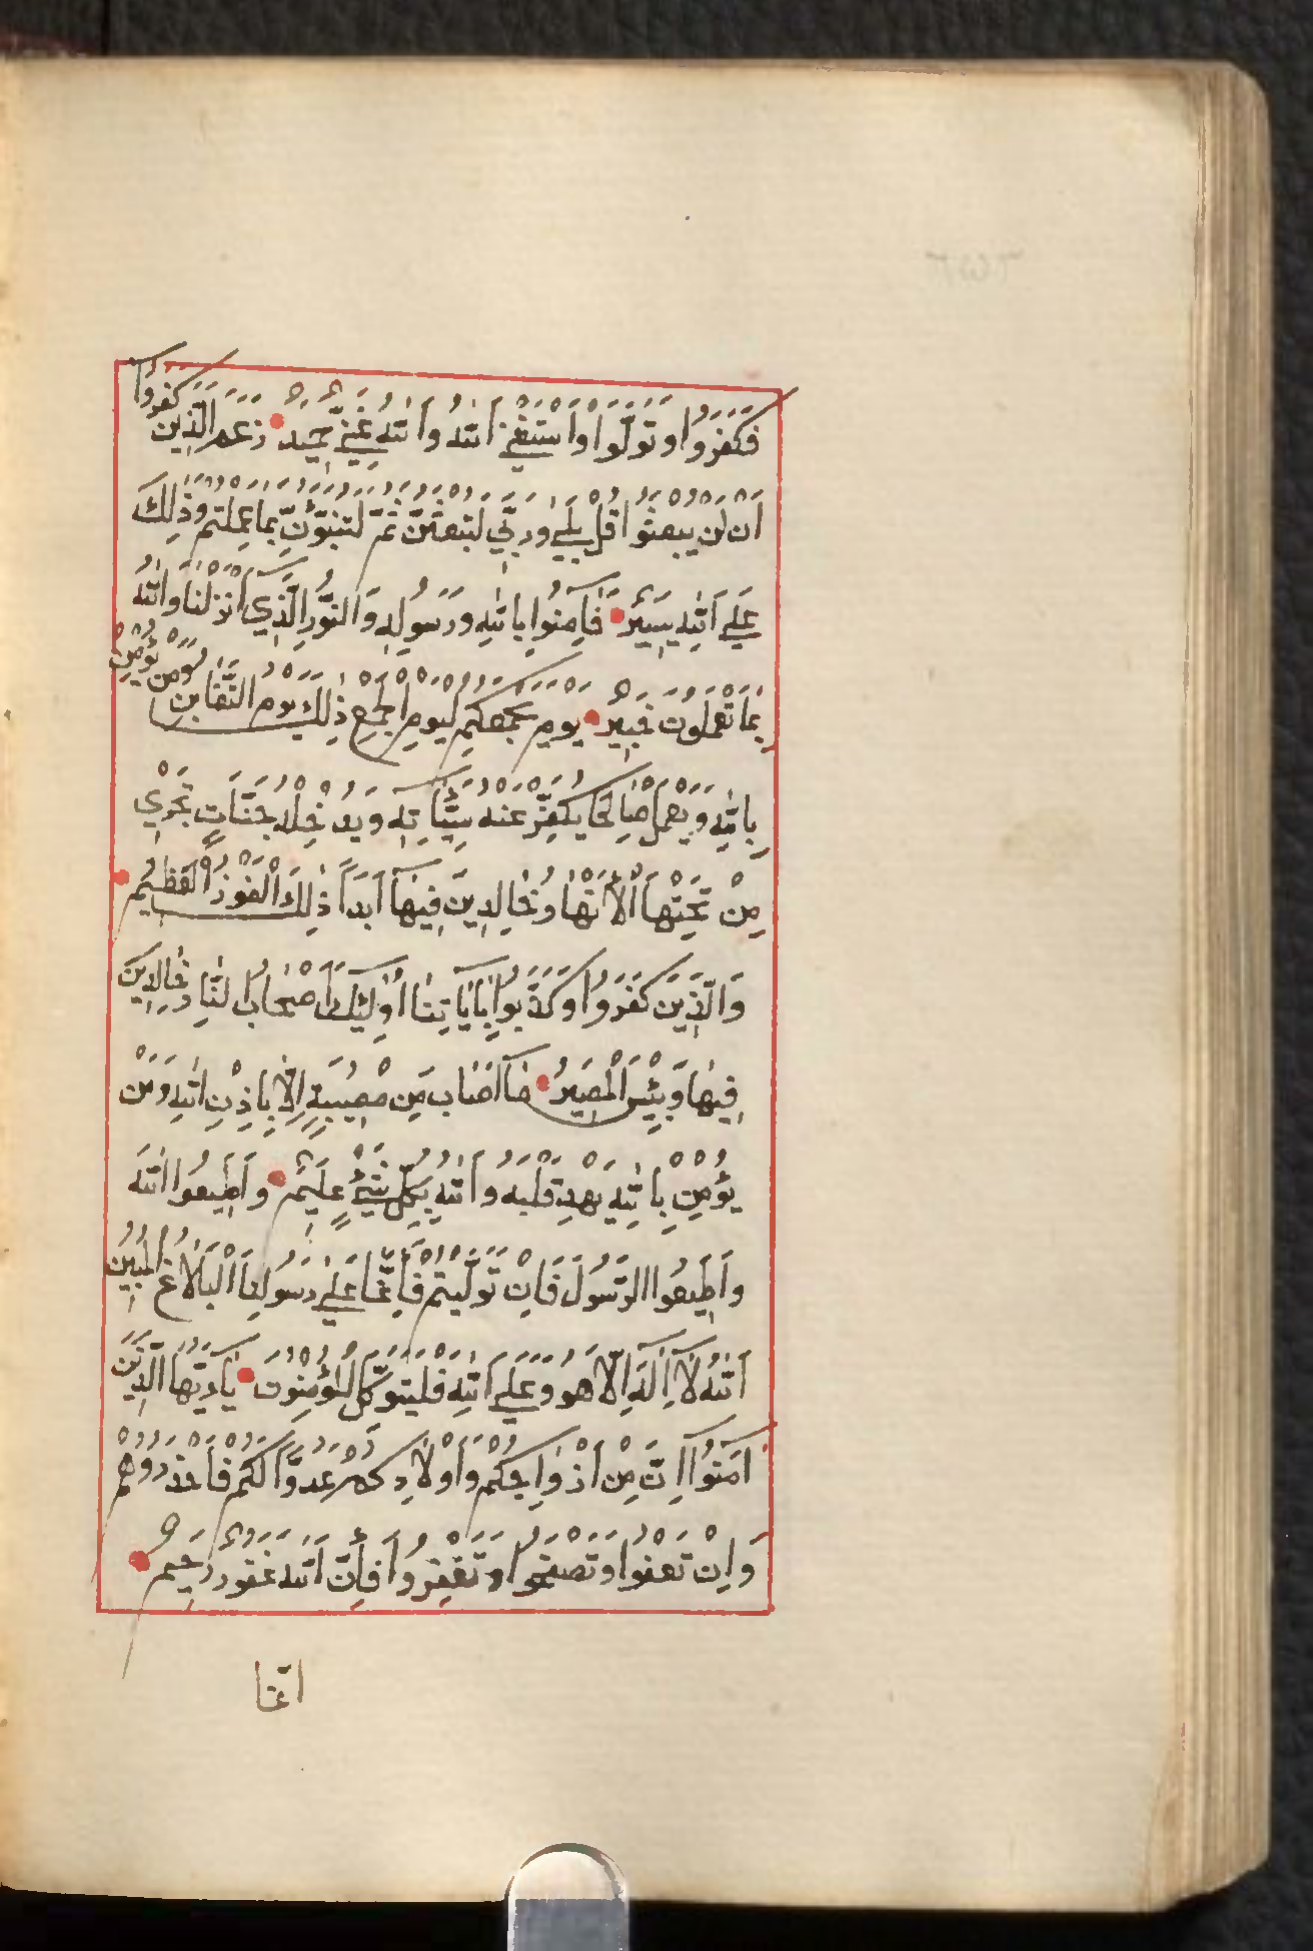 فَكَفَرُوا وَتَوَلَّوْا وَاسْتَغْنَى اللّٰهُ وَاللّٰهُ غَنِيٌّ حَمِيدٌ زَعَمَ الَّذِينَ كَفَرُوا
اَنْ لَنْ يُبْعَثُوا قُلْ بَلٰى وَرَبِّي لَتُبْعَثُنَّ ثُمَّ لَتُنَبَّؤُنَّ بِمَا عَمِلْتُمْ وَذٰلِكَ
عَلَى اللّٰهِ يَسِيرٌ فَاٰمِنُوا بِاللّٰهِ وَرَسُولِهِ وَالنُّورِ الَّذِي اَنْزَلْنَا وَاللّٰهُ
بِمَا تَعْمَلُونَ خَبِيرٌ يَوْمَ يَجْمَعُكُمْ لِيَوْمِ الْجَمْعِ ذٰلِكَ يَوْمُ التَّغَابُنِ وَمَنْ يُؤْمِنْ
بِاللّٰهِ وَيَعْمَلْ صَالِحًا يُكَفِّرْ عَنْهُ سَيِّئَاتِهِ وَيُدْخِلْهُ جَنَّاتٍ تَجْرِي
مِنْ تَحْتِهَا الْاَنْهَارُ خَالِدِينَ فِيهَا اَبَدًا ذٰلِكَ الْفَوْزُ الْعَظِيمُ
وَالَّذِينَ كَفَرُوا وَكَذَّبُوا بِاٰيَاتِنَا اُولٰئِكَ اَصْحَابُ النَّارِ خَالِدِينَ
فِيهَا وَبِئْسَ الْمَصِيرُ مَا اَصَابَ مِنْ مُصِيبَةٍ اِلَّا بِاِذْنِ اللّٰهِ وَمَنْ
يُؤْمِنْ بِاللّٰهِ يَهْدِ قَلْبَهُ وَاللّٰهُ بِكُلِّ شَيْءٍ عَلِيمٌ وَاَطِيعُوا اللّٰهَ
وَاَطِيعُوا الرَّسُولَ فَاِنْ تَوَلَّيْتُمْ فَاِنَّمَا عَلٰى رَسُولِنَا الْبَلَاغُ الْمُبِينُ
اَللّٰهُ لَا اِلٰهَ اِلَّا هُوَ وَعَلَى اللّٰهِ فَلْيَتَوَكَّلِ الْمُؤْمِنُونَ يَا اَيُّهَا الَّذِينَ
اٰمَنُوا اِنَّ مِنْ اَزْوَاجِكُمْ وَاَوْلَادِكُمْ عَدُوًّا لَكُمْ فَاحْذَرُوهُمْ
وَاِنْ تَعْفُوا وَتَصْفَحُوا وَتَغْفِرُوا فَاِنَّ اللّٰهَ غَفُورٌ رَحِيمٌ
انّما